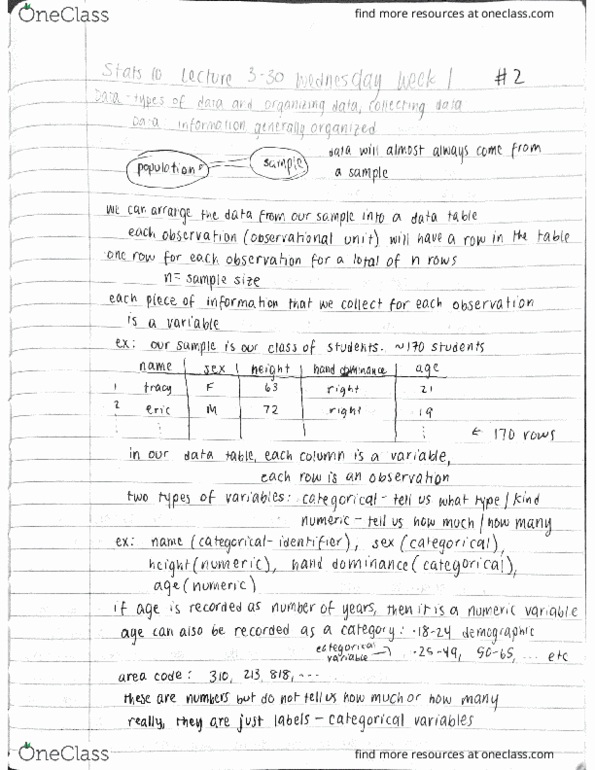 OneClass
find more resources at oneclass.com
Stats 10 Lecture 3-30 Wednesday Week 1 #2
Data - types of data and organizing data, collecting data
Data information generally organized
population sample data will almost always come from
a sample
we can arrange the data from our sample into a data table
each observation (observational unit) will have a row in the table
one row for each observation for a total of n rows
n = sample size
each piece of information that we collect for each observation
is a variable
ex: our sample is our class of students. ~170 students
name | sex | height | hand dominance | age
1 tracy | F | 63 | right | 21
2 eric | M | 72 | right | 19
← 170 rows
in our data table, each column is a variable,
each row is an observation
two types of variables: categorical - tell us what type / kind
numeric - tell us how much / how many
ex: name (categorical - identifier), sex (categorical),
height (numeric), hand dominance (categorical),
age (numeric)
if age is recorded as number of years, then it is a numeric variable
age can also be recorded as a category: · 18-24 demographic
categorical variable → · 25-49, 50-65, ... etc
area code: 310, 213, 818, ...
these are numbers but do not tell us how much or how many
really, they are just labels - categorical variables
OneClass
find more resources at oneclass.com